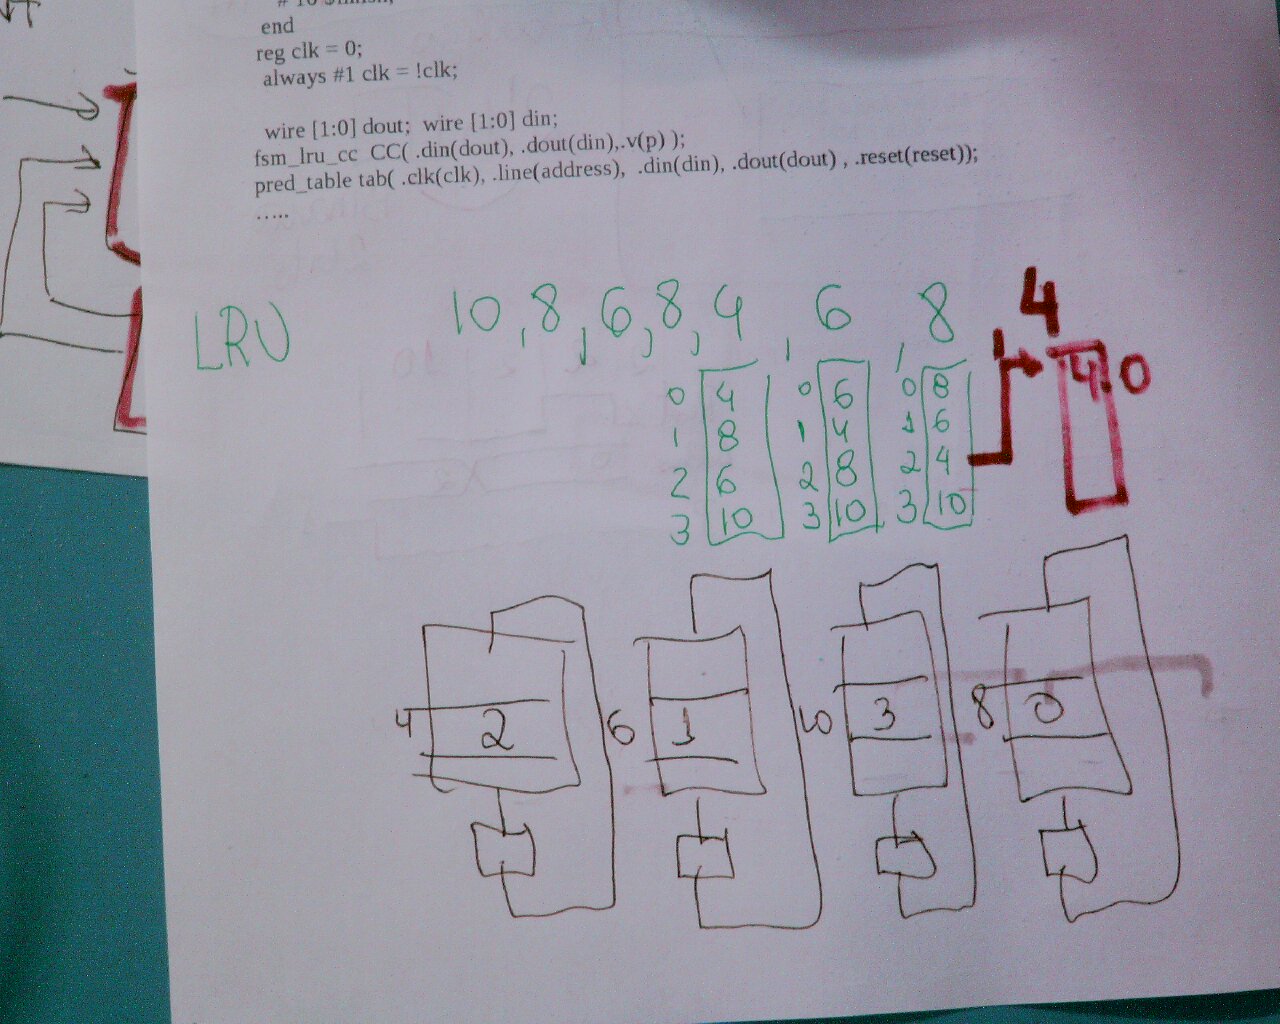 end
reg clk = 0;
always #1 clk = !clk;
wire [1:0] dout; wire [1:0] din;
fsm_lru_cc CC( .din(dout), .dout(din),.v(p) );
pred_table tab( .clk(clk), .line(address), .din(din), .dout(dout) , .reset(reset));
.....
LRU 10, 8, 6, 8, 4, 6, 8 4
0 4 0 6 0 8 4 0
1 8 1 4 1 6
2 6 2 8 2 4
3 10 3 10 3 10
4 2 6 1 10 3 8 0